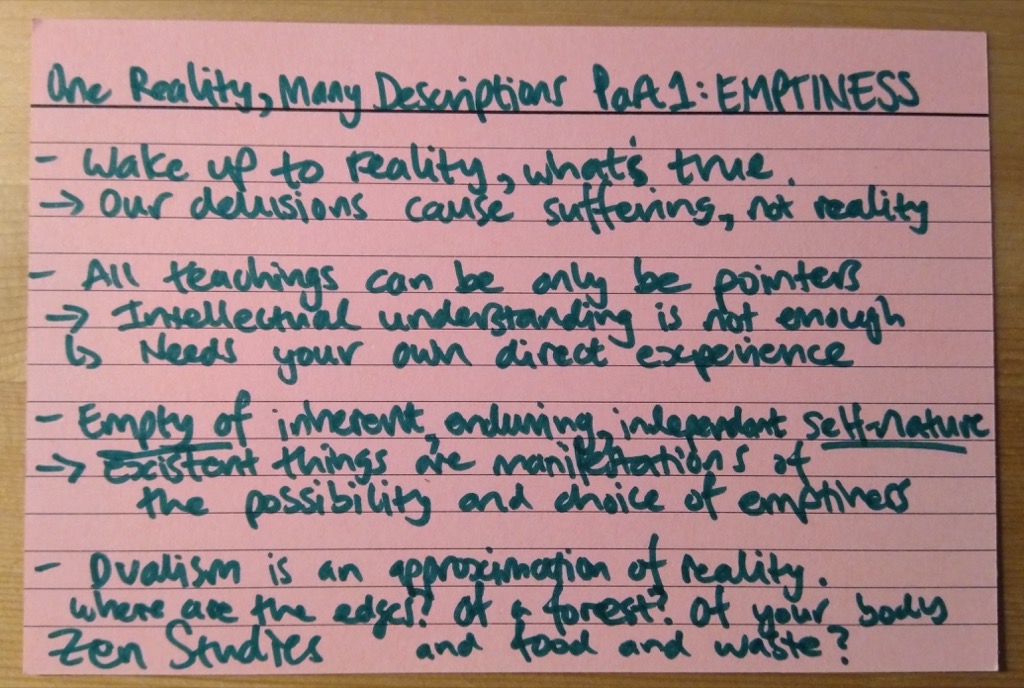 One Reality, Many Descriptions Part 1: EMPTINESS
- Wake up to reality, what's true.
→ Our delusions cause suffering, not reality
- All teachings can be only be pointers
→ Intellectual understanding is not enough
↳ Needs your own direct experience
- Empty of inherent, enduring, independent self-nature
→ Existent things are manifestations of
the possibility and choice of emptiness
- Dualism is an approximation of reality.
where are the edges? Of a forest? Of your body
Zen Studies and food and waste?